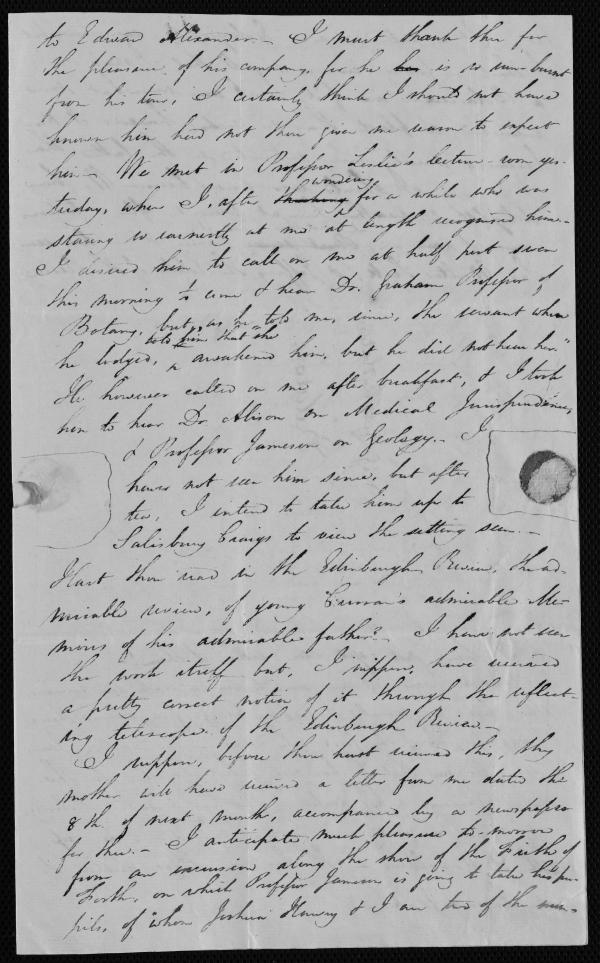 to Edward Alexander.— I must thank thee for
the pleasure of his company, for he has is so sun-burnt
from his tour, I certainly think I should not have
known him had not thou given me reason to expect
him— We met in Professor Leslie's lecture-room yes-
wondering
terday, when I, after thinking for a while who was
staring so earnestly at me at length recognised him—
I desired him to call on me at half past seven
this morning to come & hear Dr. Graham Professor of
Botany, but, as he told me, since, the servant where
told him that she
he lodged, "awakened him, but he did not hear her."
He however called on me after breakfast, & I took
him to hear Dr. Alison on Medical Jurisprudence,
& Professor Jameson on Geology.— I
have not seen him since, but after
tea, I intend to take him up to
Salisbury Craigs to view the setting sun.—
Hast thou read in the Edinburgh Review, the ad-
mirable review, of young Curran's admirable Me-
moirs of his admirable father?— I have not seen
the work itself but, I suppose, have received
a pretty correct notion of it through the reflect-
ing telescope of the Edinburgh Review.—
I suppose, before thou hast received this, thy
mother will have received a letter from me dated the
8th. of next month, accompanied by a newspaper
for thee.— I anticipate much pleasure to-morrow
from an excursion along the shore of the Firth of
Forth, on which Professor Jameson is going to take his pu-
pils, of whom Joshua Harvey & I are two of the num-